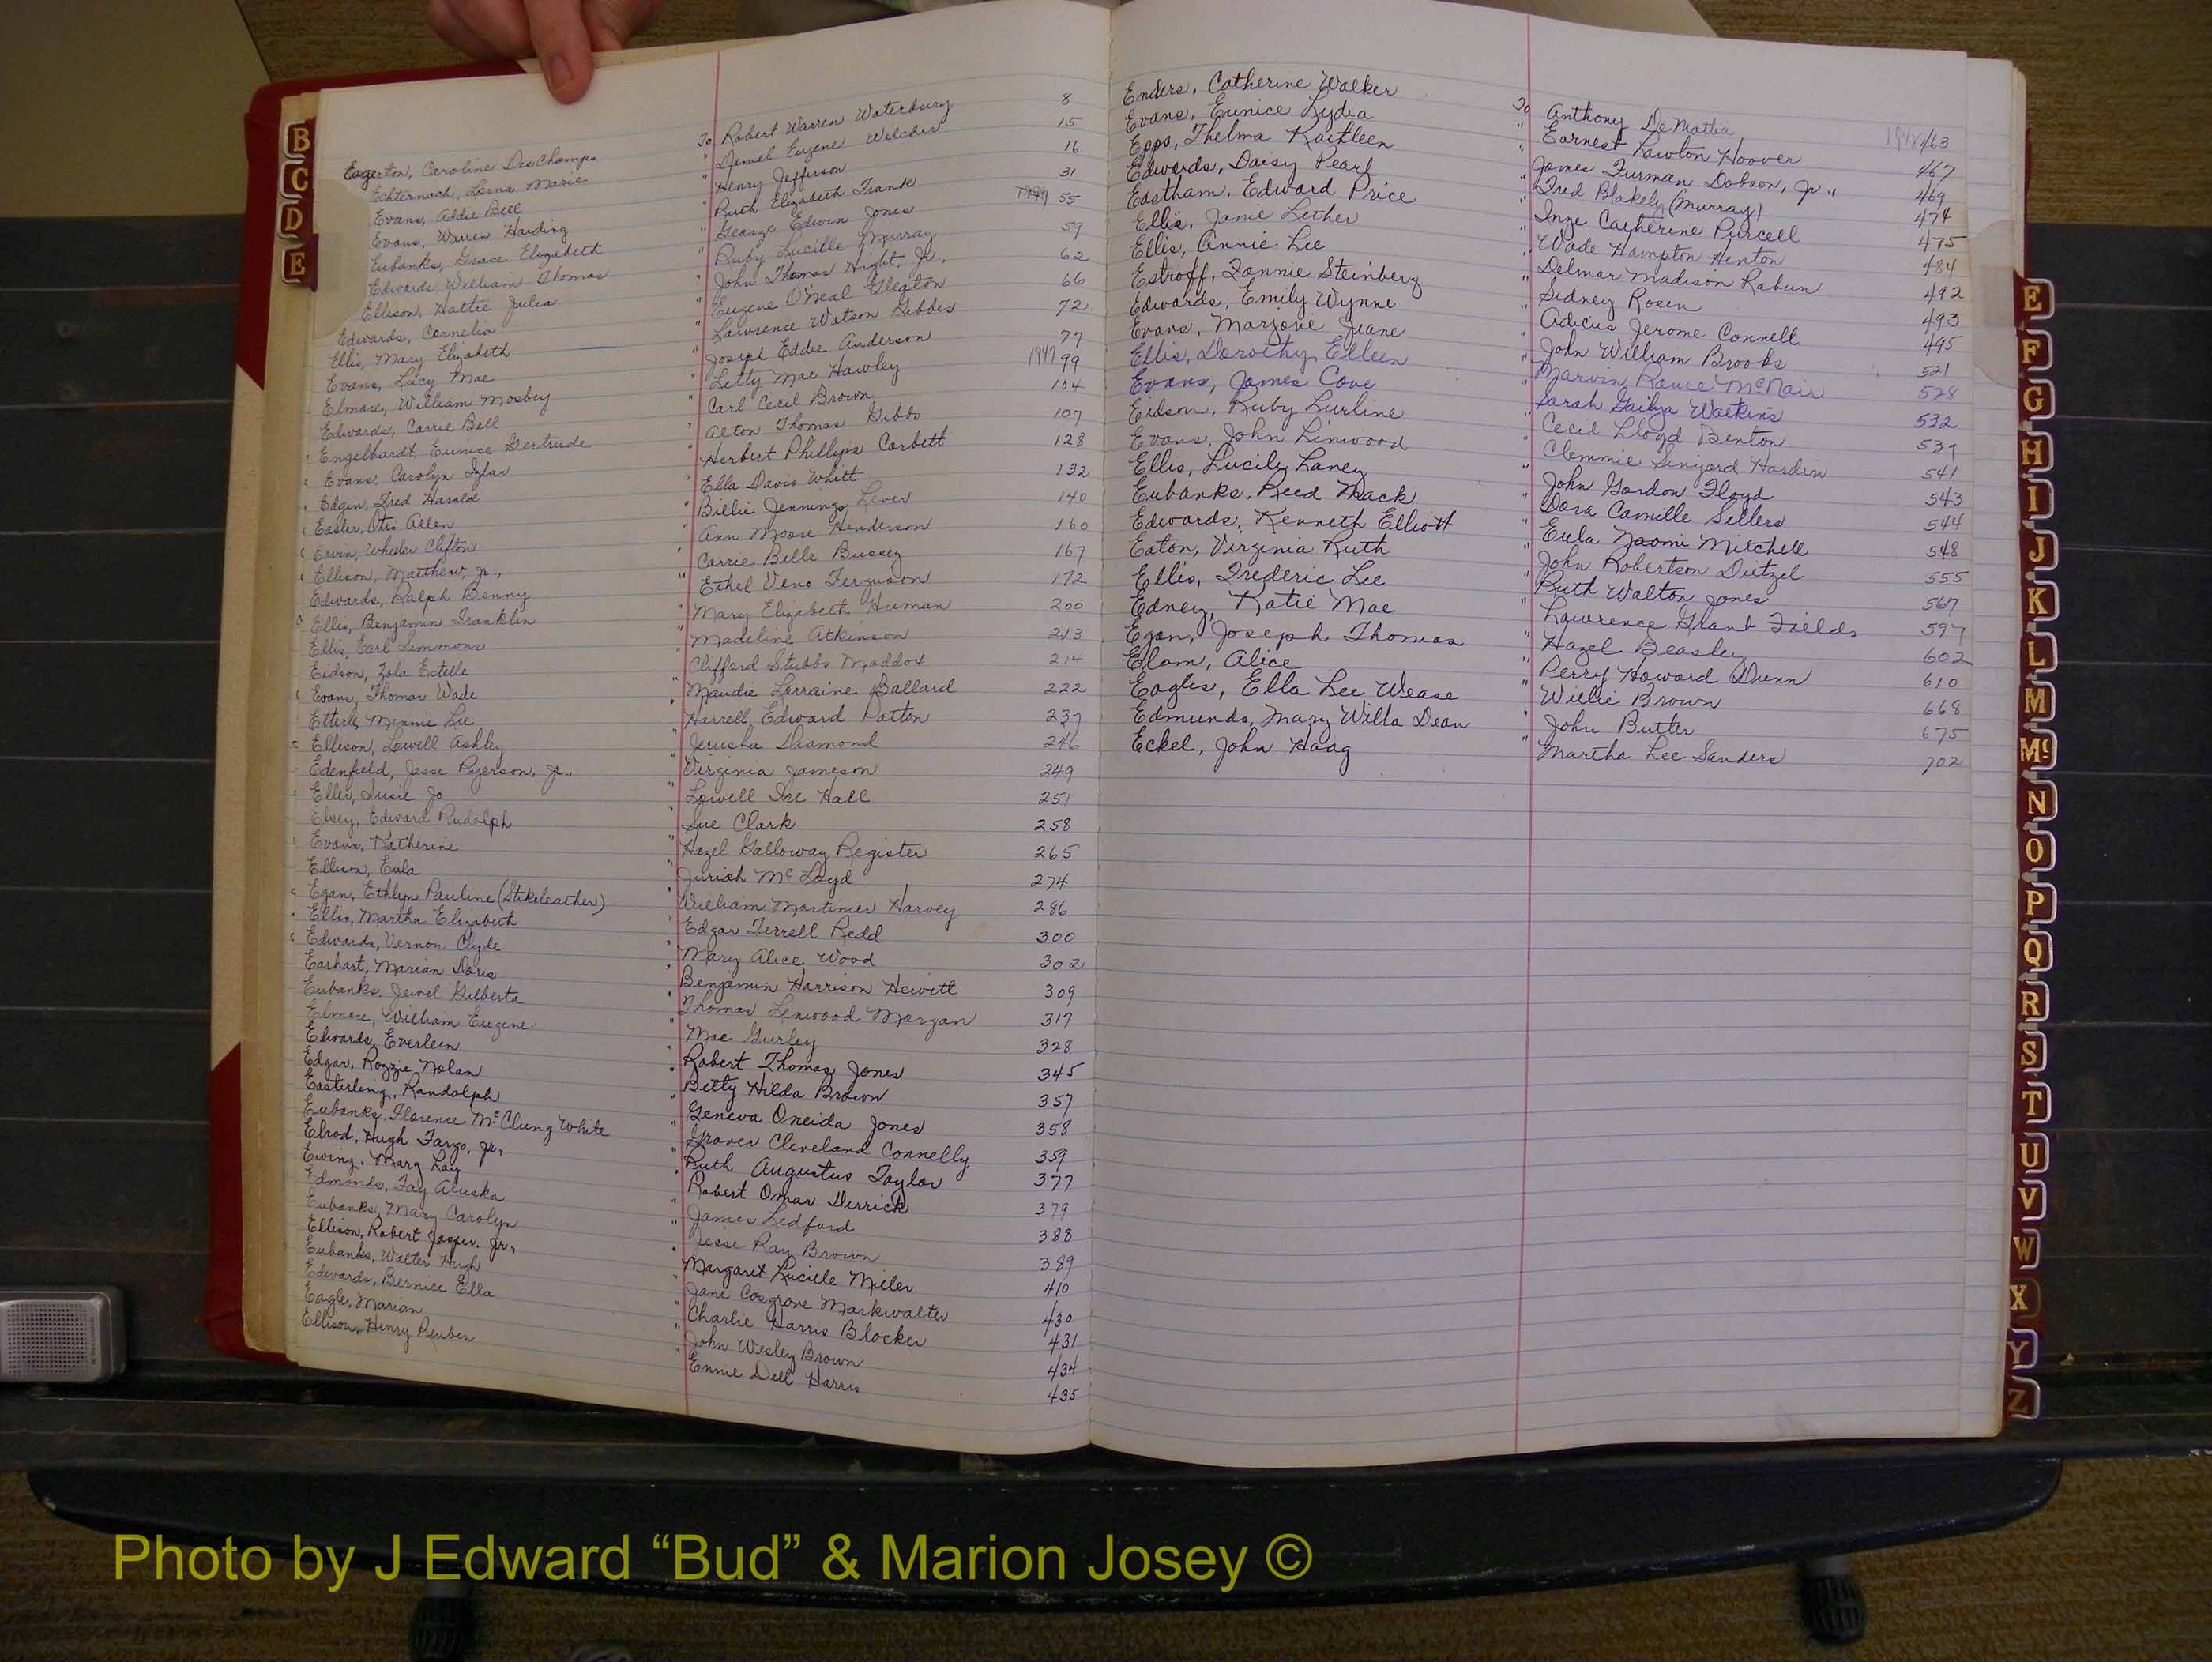 B
C
D
E
Eagerton, Caroline DesChamps To Robert Warren Waterbury 8
Echternach, Lorna Marie " Daniel Eugene Wilcher 15
Evans, Addie Bell " Henry Jefferson 16
Evans, Warren Harding " Ruth Elizabeth Frank 31
Eubanks, Grace Elizabeth " George Edwin Jones 1947 55
Edwards, William Thomas " Ruby Lucille Murray 59
Ellison, Hattie Julia " John Thomas Hight, Jr., 62
Edwards, Cornelia " Eugene O'Neal Gleaton 66
Ellis, Mary Elizabeth " Lawrence Watson Gibbes 72
Evans, Lucy Mae " Joseph Eddie Anderson 77
Elmore, William Mosbey " Letty Mae Hawley 1947 99
Edwards, Carrie Bell " Carl Cecil Brown 104
Engelhardt, Eunice Gertrude " Alton Thomas Gibbs 107
Evans, Carolyn Izlar " Herbert Phillips Corbett 128
Edgin, Fred Harold " Ella Davis Whitt 132
Easler, Otis Allen " Billie Jennings Lever 140
Ervin, Wheeler Clifton " Ann Moore Henderson 160
Ellison, Matthew, Jr., " Carrie Belle Bussey 167
Edwards, Ralph Benny " Ethel Vena Ferguson 172
Ellis, Benjamin Franklin " Mary Elizabeth Human 200
Ellis, Earl Simmons " Madeline Atkinson 213
Eidson, Zola Estelle " Clifford Stubbs Maddox 214
Evans, Thomas Wade " Maudie Lorraine Ballard 222
Etterle, Minnie Lee " Harrell Edward Patton 237
Ellison, Lowell Ashley " Jerusha Diamond 246
Edenfield, Jesse Ryerson, Jr., " Virginia Jameson 249
Eller, Susie Jo " Lowell Ire Hall 251
Elsey, Edward Rudolph " Sue Clark 258
Evans, Katherine " Hazel Galloway Register 265
Ellison, Eula " Juriah McLoyd 274
Egan, Ethlyn Pauline (Stikeleather) " William Mortimer Harvey 286
Ellis, Martha Elizabeth " Edgar Terrell Redd 300
Edwards, Vernon Clyde " Mary Alice Wood 302
Earhart, Marian Doris " Benjamin Harrison Hewitt 309
Eubanks, Jewel Gilberta " Thomas Linwood Morgan 317
Elmore, William Eugene " Mae Gurley 328
Edwards, Everleen " Robert Thomas Jones 345
Edgar, Rozzie Nolan " Betty Hilda Brown 357
Easterling, Randolph " Geneva Oneida Jones 358
Eubanks, Florence McClung White " Grover Cleveland Connelly 359
Elrod, Hugh Fargo, Jr., " Ruth Augustus Taylor 377
Ewing, Mary Lay " Robert Omar Derrick 379
Edmonds, Fay Aluska " James Ledford 388
Eubanks, Mary Carolyn " Jesse Ray Brown 389
Ellison, Robert Jasper, Jr., " Margaret Lucille Miller 410
Eubanks, Walter Hugh " Jane Cosgrove Markwalter 430
Edwards, Bernice Ella " Charlie Harris Blocker 431
Eagle, Marian " John Wesley Brown 434
Ellison, Henry Reuben " Ennie Dell Harris 435
Enders, Catherine Walker To Anthony DeMattia 1948 463
Evans, Eunice Lydia " Earnest Lawton Hoover 467
Epps, Thelma Kathleen " James Furman Dobson, Jr., 469
Edwards, Daisy Pearl " Fred Blakely (Murray) 474
Eastham, Edward Price " Inze Catherine Purcell 475
Ellis, Janie Lether " Wade Hampton Henton 484
Ellis, Annie Lee " Delmar Madison Rabun 492
Estroff, Fannie Steinberg " Sidney Rosen 493
Edwards, Emily Wynne " Adicus Jerome Connell 495
Evans, Marjorie Juane " John William Brooks 521
Ellis, Dorothy Elleen " Marvin Rauce McNair 528
Evans, James Cove " Sarah Gailya Watkins 532
Eidson, Ruby Lurline " Cecil Lloyd Benton 539
Evans, John Linwood " Clemmie Sinyard Hardin 541
Ellis, Lucily Laney " John Gordon Floyd 543
Eubanks, Reed Mack " Dora Camille Sellers 544
Edwards, Kenneth Elliott " Eula Naomi Mitchell 548
Eaton, Virginia Ruth " John Robertson Dietzel 555
Ellis, Frederic Lee " Ruth Walton Jones 567
Edney, Katie Mae " Lawrence Grant Fields 597
Egan, Joseph Thomas " Hazel Beasley 602
Elam, Alice " Perry Howard Dunn 610
Eagles, Ella Lee Wease " Willie Brown 668
Edmunds, Mary Willa Dean " John Butler 675
Eckel, John Haag " Martha Lee Sanders 702
E
F
G
H
I
J
K
L
M
Mc
N
O
P
Q
R
S
T
U
V
W
X
Y
Z
Photo by J Edward “Bud” & Marion Josey ©